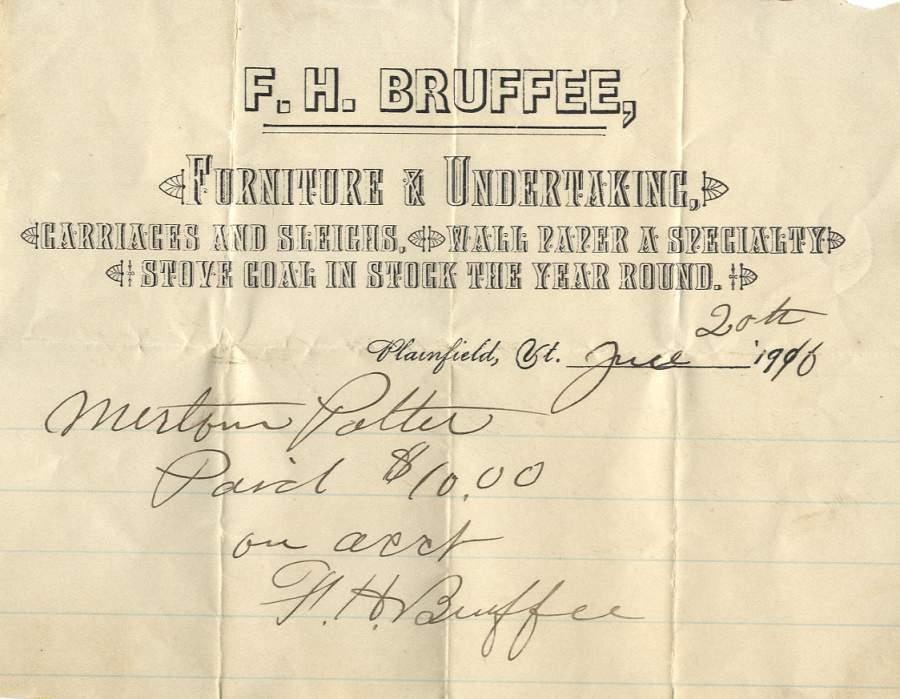 F. H. BRUFFEE,
FURNITURE & UNDERTAKING,
CARRIAGES AND SLEIGHS, WALL PAPER A SPECIALTY
STOVE COAL IN STOCK THE YEAR ROUND.
Plainfield, Vt. June 20th 1916
Merton Potter
Paid $10.00
on acct
F. H. Bruffee